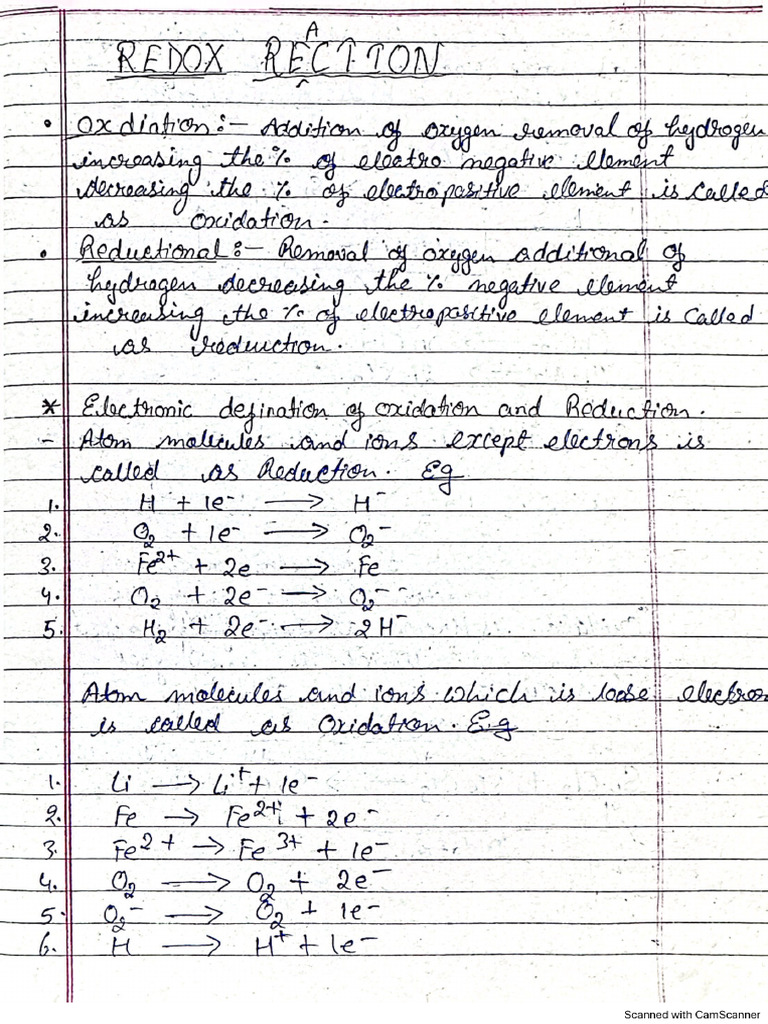 REDOX REACTION
• Oxdiation:- Addition of oxygen removal of hydrogen
increasing the % of electro negative element
decreasing the % of electropositive element is called
as oxidation.
• Reductional:- Removal of oxygen additional of
hydrogen decreasing the % negative element
increasing the % of electropositive element is called
as reduction.
* Electronic defination of oxidation and Reduction.
- Atom molecules and ions except electrons is
called as Reduction. Eg
1. H + 1e⁻ → H⁻
2. O₂ + 1e⁻ → O₂⁻
3. Fe²⁺ + 2e → Fe
4. O₂ + 2e⁻ → O₂⁻⁻
5. H₂ + 2e⁻ → 2H⁻
Atom molecules and ions which is loose electron
is called as Oxidation. E.g
1. Li → Li⁺ + 1e⁻
2. Fe → Fe²⁺ + 2e⁻
3. Fe²⁺ → Fe³⁺ + 1e⁻
4. O₂ → O₂ + 2e⁻
5. O₂⁻ → O₂ + 1e⁻
6. H → H⁺ + 1e⁻
Scanned with CamScanner